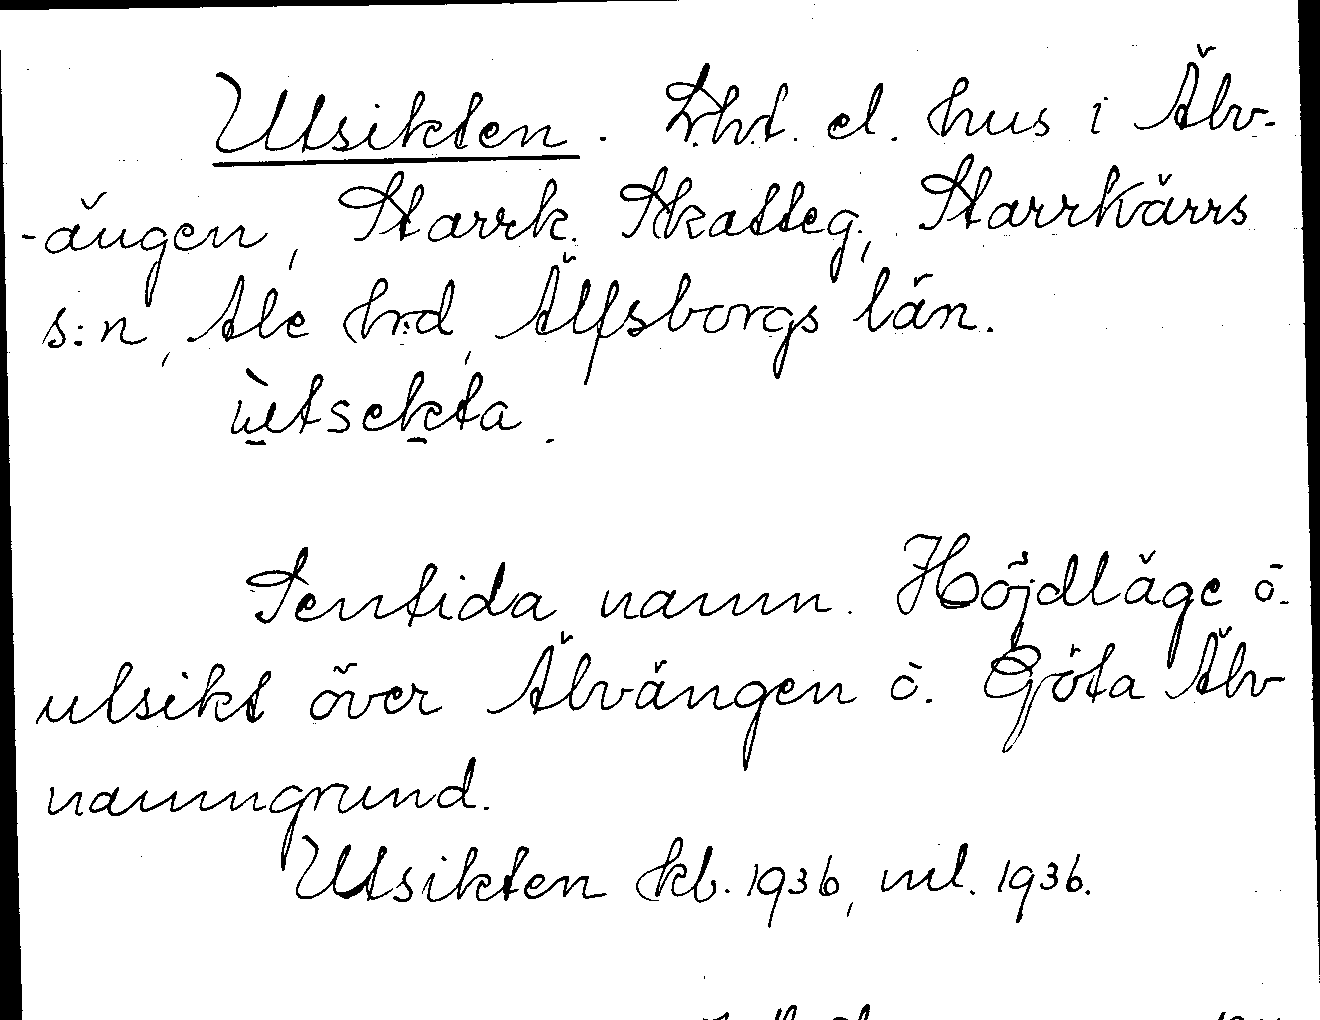 Utsikten. Lht. el. hus i Älv-
-ängen, Starrk. Skatteg., Starrkärrs
s:n, Ale hd, Älfsborgs län.
ùtsekta.
Sentida namn. Höjdläge o.
utsikt över Älvängen o. Göta Älv
namngrund.
Utsikten kb. 1936, ml. 1936.